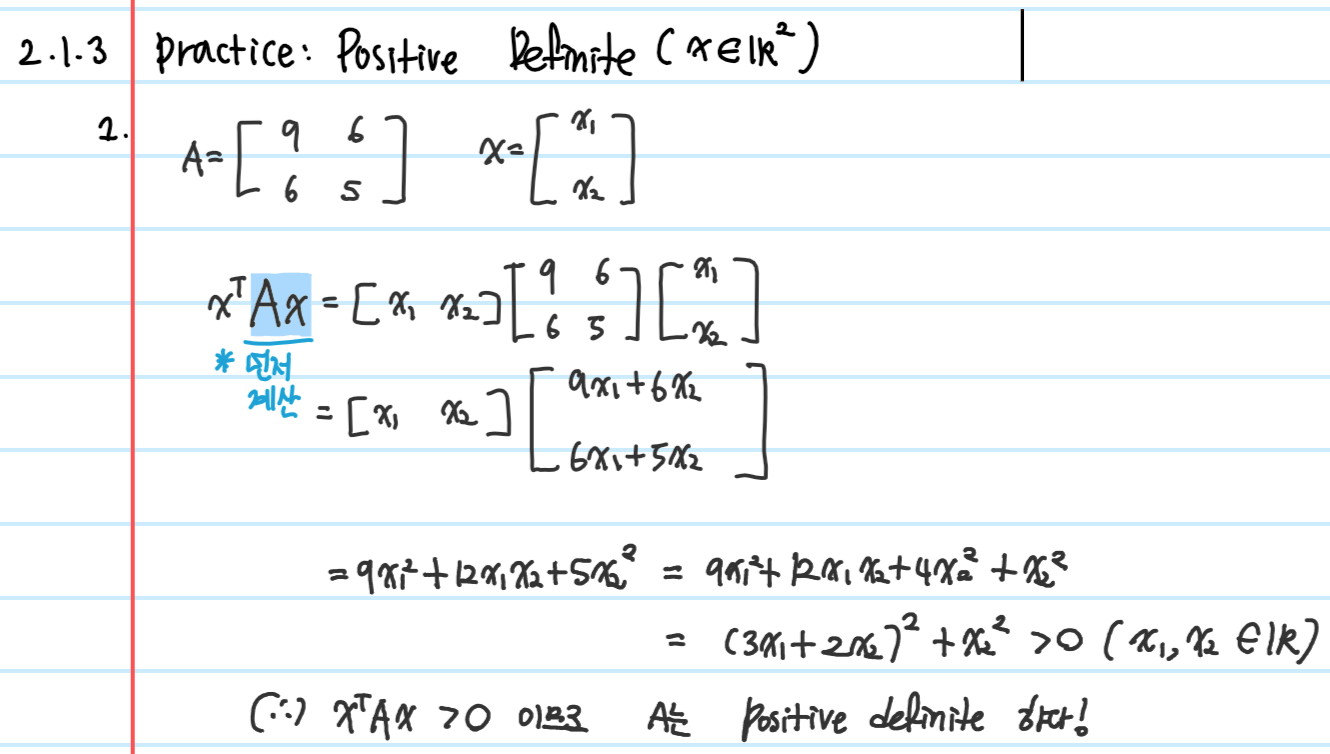 2.1.3 practice: Positive Definite (x∈ℝ²)
1. A = [ 9 6 ; 6 5 ] x = [ x₁ ; x₂ ]
xᵀAx = [ x₁ x₂ ] [ 9 6 ; 6 5 ] [ x₁ ; x₂ ]
* 먼저
계산
= [ x₁ x₂ ] [ 9x₁+6x₂ ; 6x₁+5x₂ ]
= 9x₁²+12x₁x₂+5x₂² = 9x₁²+12x₁x₂+4x₂²+x₂²
= (3x₁+2x₂)²+x₂² >0 (x₁, x₂ ∈ℝ)
(∴) xᵀAx >0 이므로 A는 positive definite 하다!